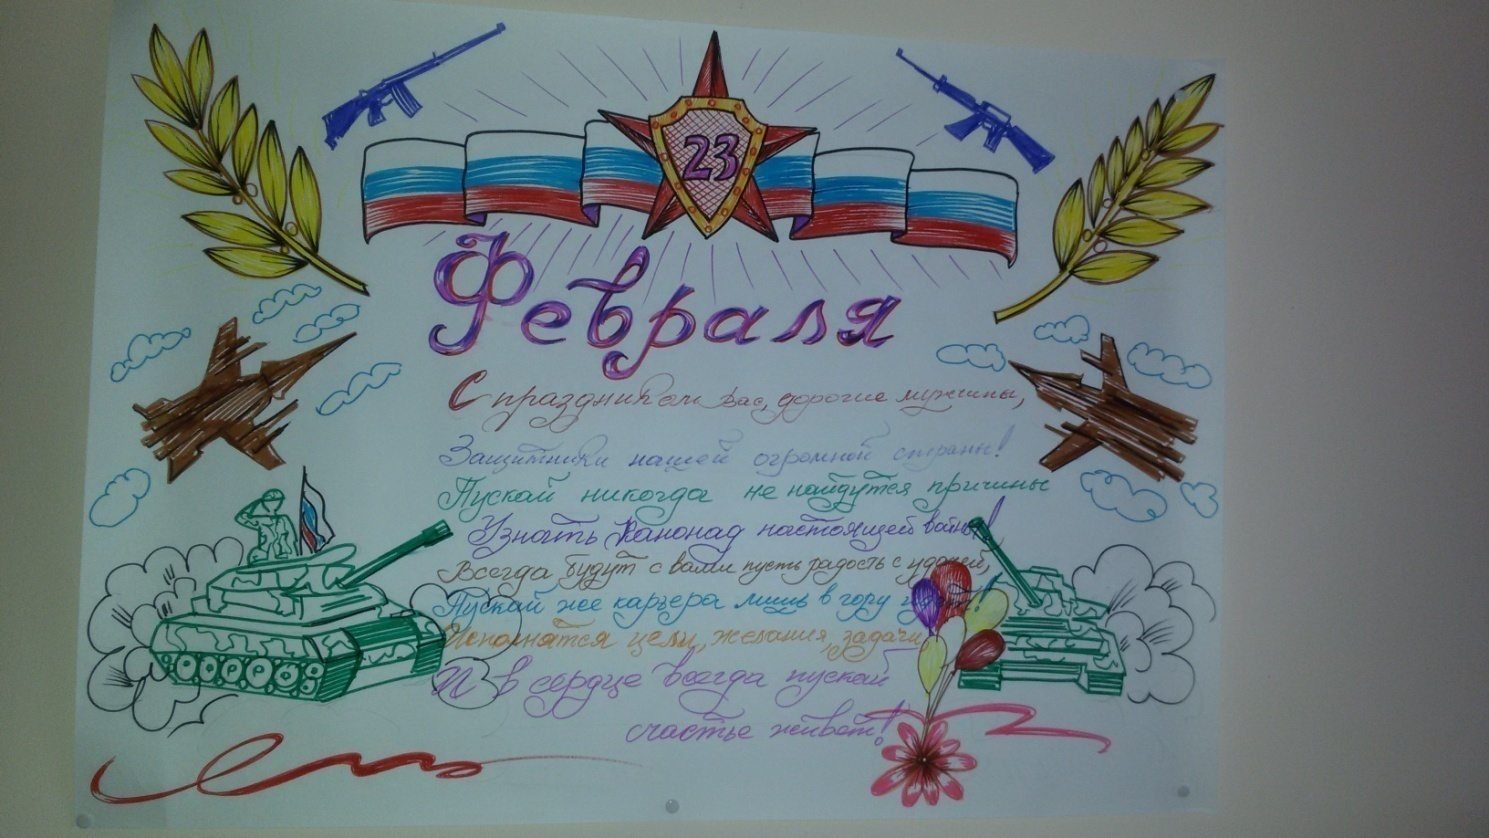 23
Февраля
С праздником вас, дорогие мужчины,
Защитники нашей огромной страны!
Пускай никогда не найдутся причины
Узнать канонад настоящей войны!
Всегда будут с вами пусть радость с удачей,
Пускай же карьера лишь в гору идёт!
Исполнятся цели, желания, задачи,
И в сердце всегда пускай
счастье живет!